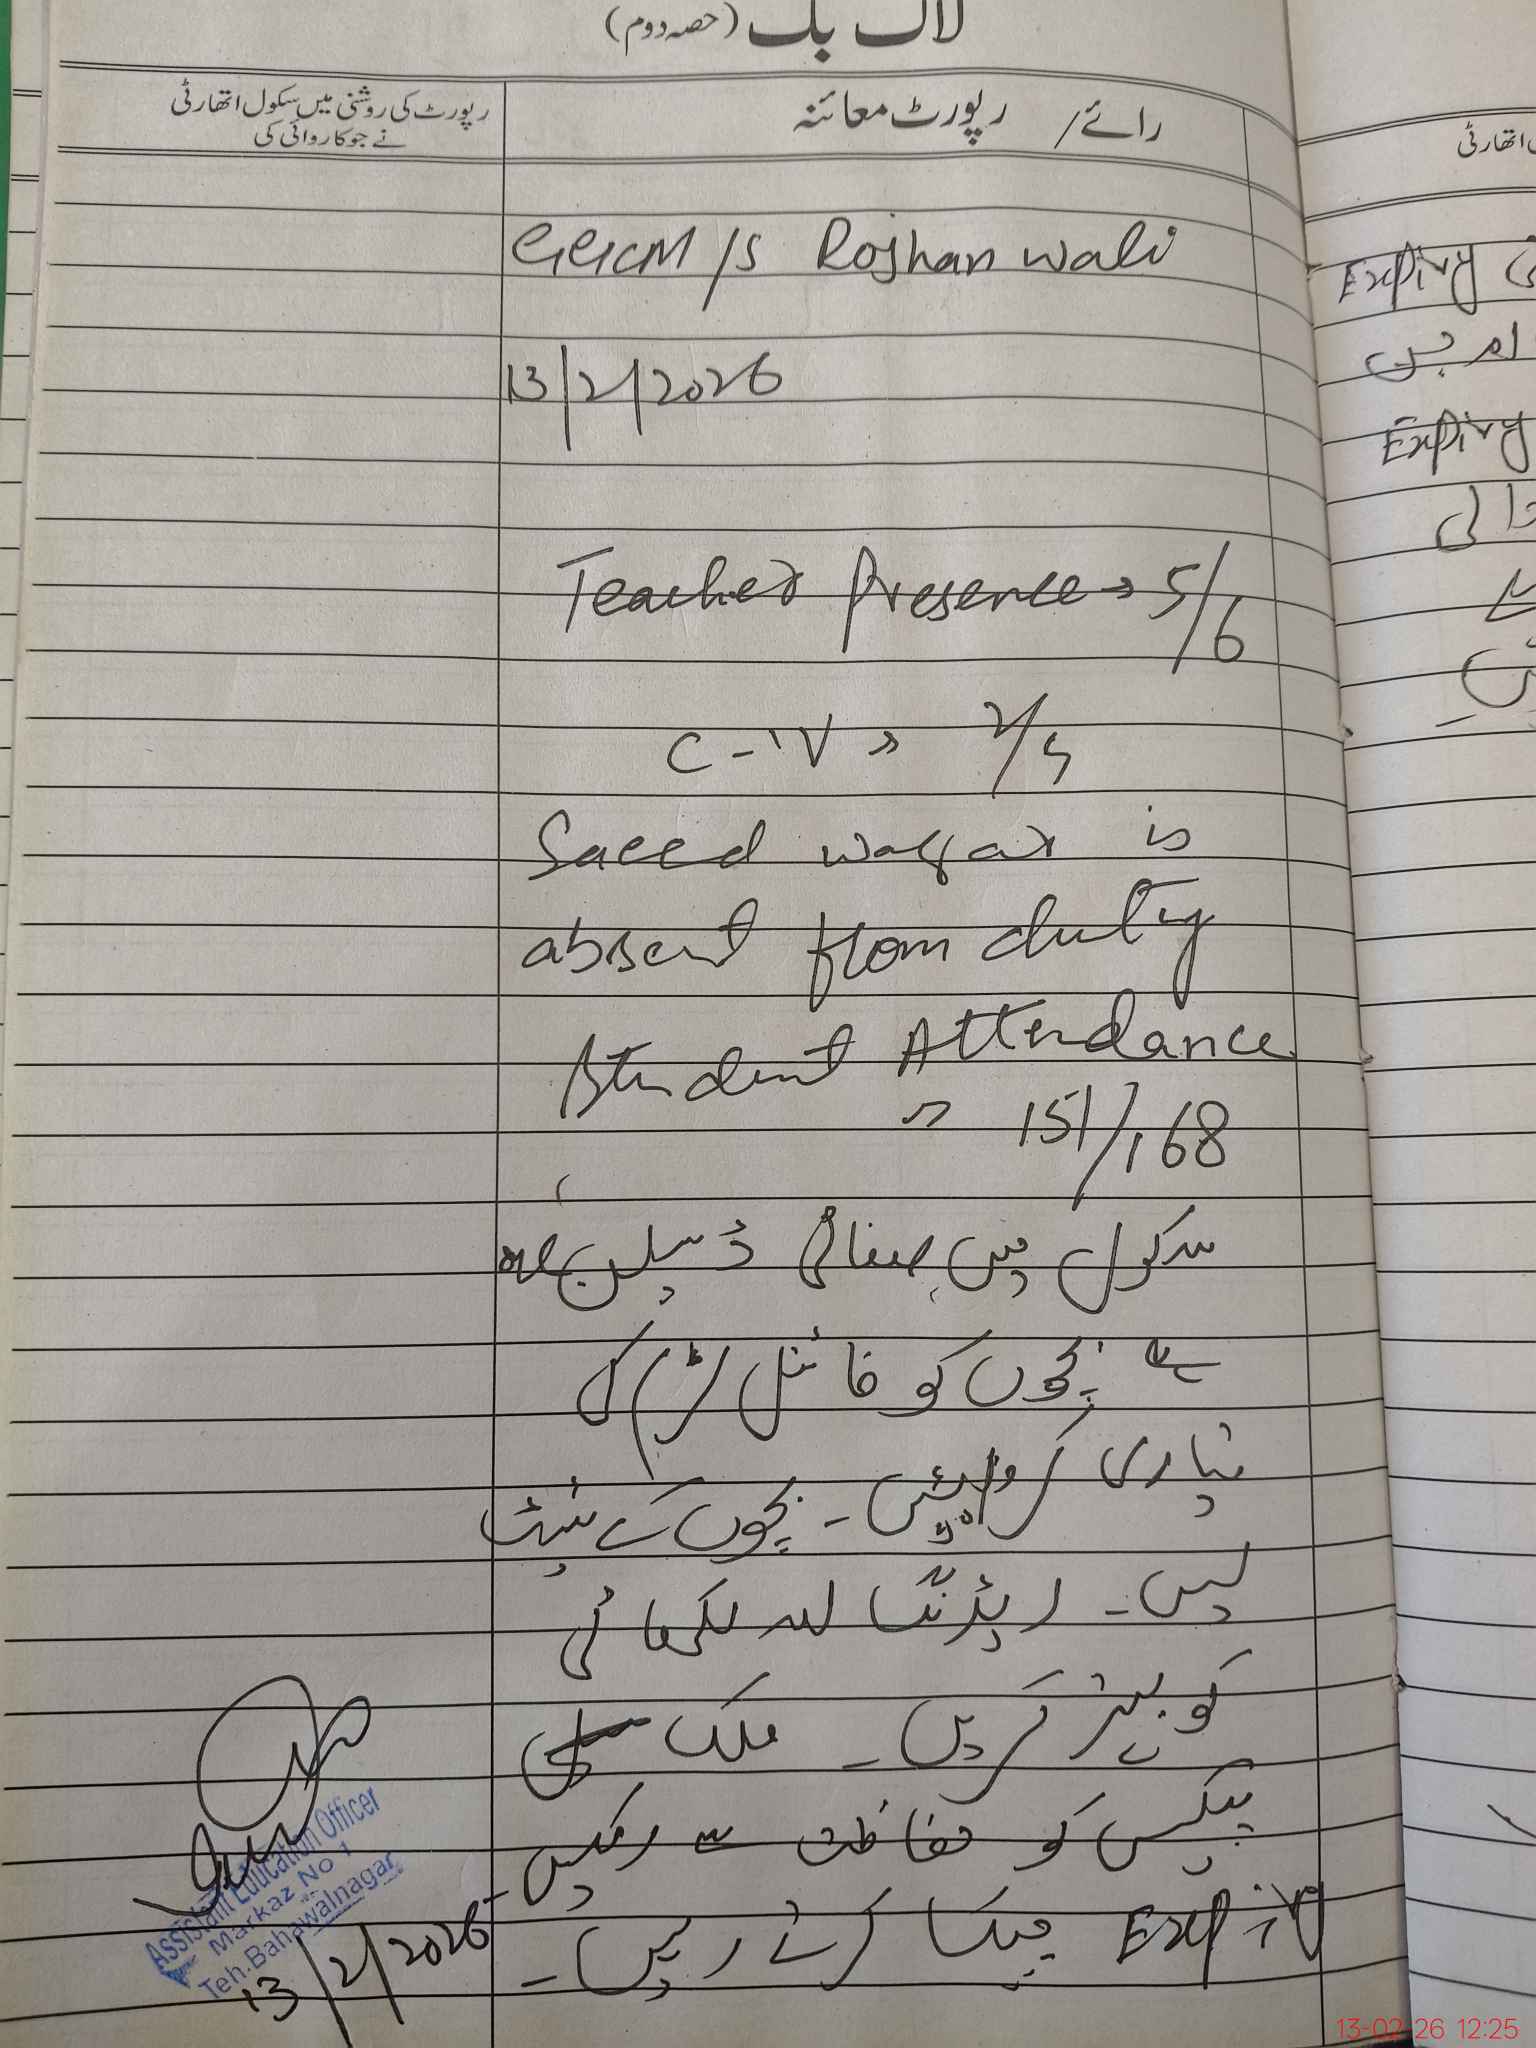 لاگ بک (حصہ دوم)
رائے / رپورٹ معائنہ
رپورٹ کی روشنی میں سکول اتھارٹی
نے جو کاروائی کی
GGCM/S Rojhan wali
13/2/2026
Teacher Presence → 5/6
C-IV » 2/5
Saeed waqar is
absent from duty
Student Attendance
» 151/168
سکول میں صفائی ڈسپلن
ہے بچوں کو فائنل ٹرم کی
تیاری کروائیں۔ بچوں کے ٹیسٹ
لیں۔ ریڈنگ اور لکھائی
کو بہتر کریں۔ ملک
پیکس کو حفاظت سے رکھیں۔
Expiry چیک کرتے رہیں۔
Assistant Education Officer
Markaz No 1
Teh. Bahawalnagar
13/2/2026
اتھارٹی
Expiry
Expiry
13-02-26 12:25